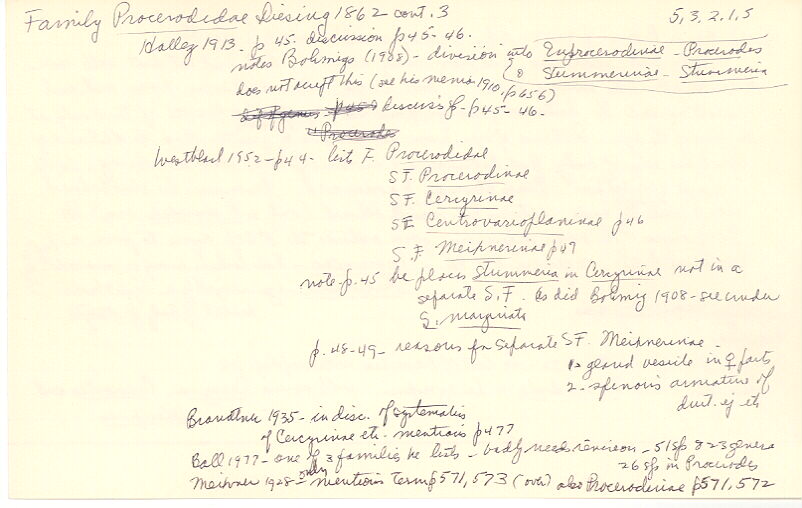 Family Procerodidae Diesing 1862 cont. 3 5, 3, 2, 1, 5
Hallez 1913 - p 45. discussion p45-46.
notes Bohmigs (1908) - division into Euprocerodinae - Procerodes
does not accept this (see his memoir 1910, p656) Stummerinae - Stummeria
discuss p45-46.
" Procerodes
Westblad 1952 - p44 - lists F. Procerodidae
SF. Procerodinae
SF. Cercyrinae
SF. Centrovarioplaninae p46
S.F. Meixnerinae p47
note p.45 he places Stummeria in Cercyrinae not in a
separate S.F. as did Bohmig 1908 - see under
S. marginata
p.48-49 - reasons for separate SF. Meixnerinae -
1 - gland vesicle in ♀ parts
2 - spinous armature of
duct. ej etc
1935 - in disc. of systematics
of Cercyrinae etc - mentions p477
Ball 1977 - one of 3 families he lists - badly needs revision - 51 sp & 23 genera
26 sp in Procerodes
Meixner 1928 - only mentions term p571, 573 (over) also Procerodinae p571, 572